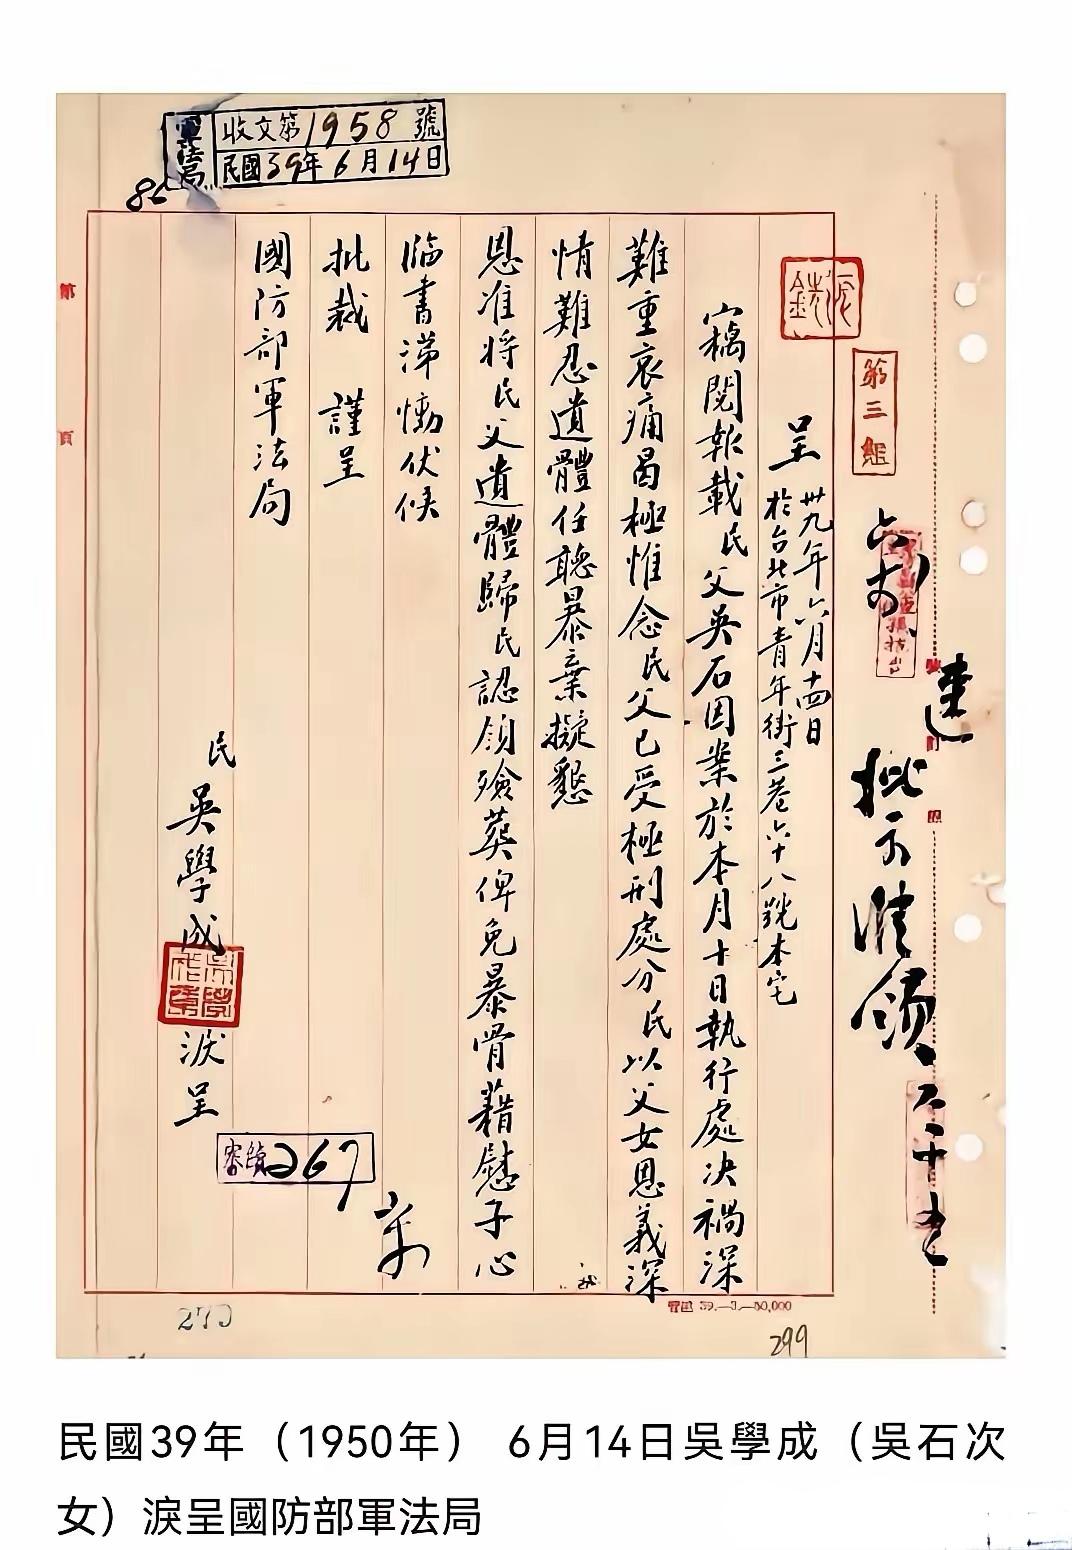 軍法局
收文第1958號
民國39年6月14日
第三組
呈
卅九年六月十四日
於台北市青年街三巷六十八號本宅
竊閱報載民父吳石因案於本月十日執行處决禍深
難重哀痛曷極惟念民父已受極刑處分民以父女恩義深
情難忍遺體任聽暴棄擬懇
恩准將民父遺體歸民認領殮葬俾免暴骨藉慰子心
臨書涕慟伏候
批裁 謹呈
國防部軍法局
民 吳學成 淚呈
批示准領
267
第 頁
299
民國39年（1950年） 6月14日吳學成（吳石次
女）淚呈國防部軍法局